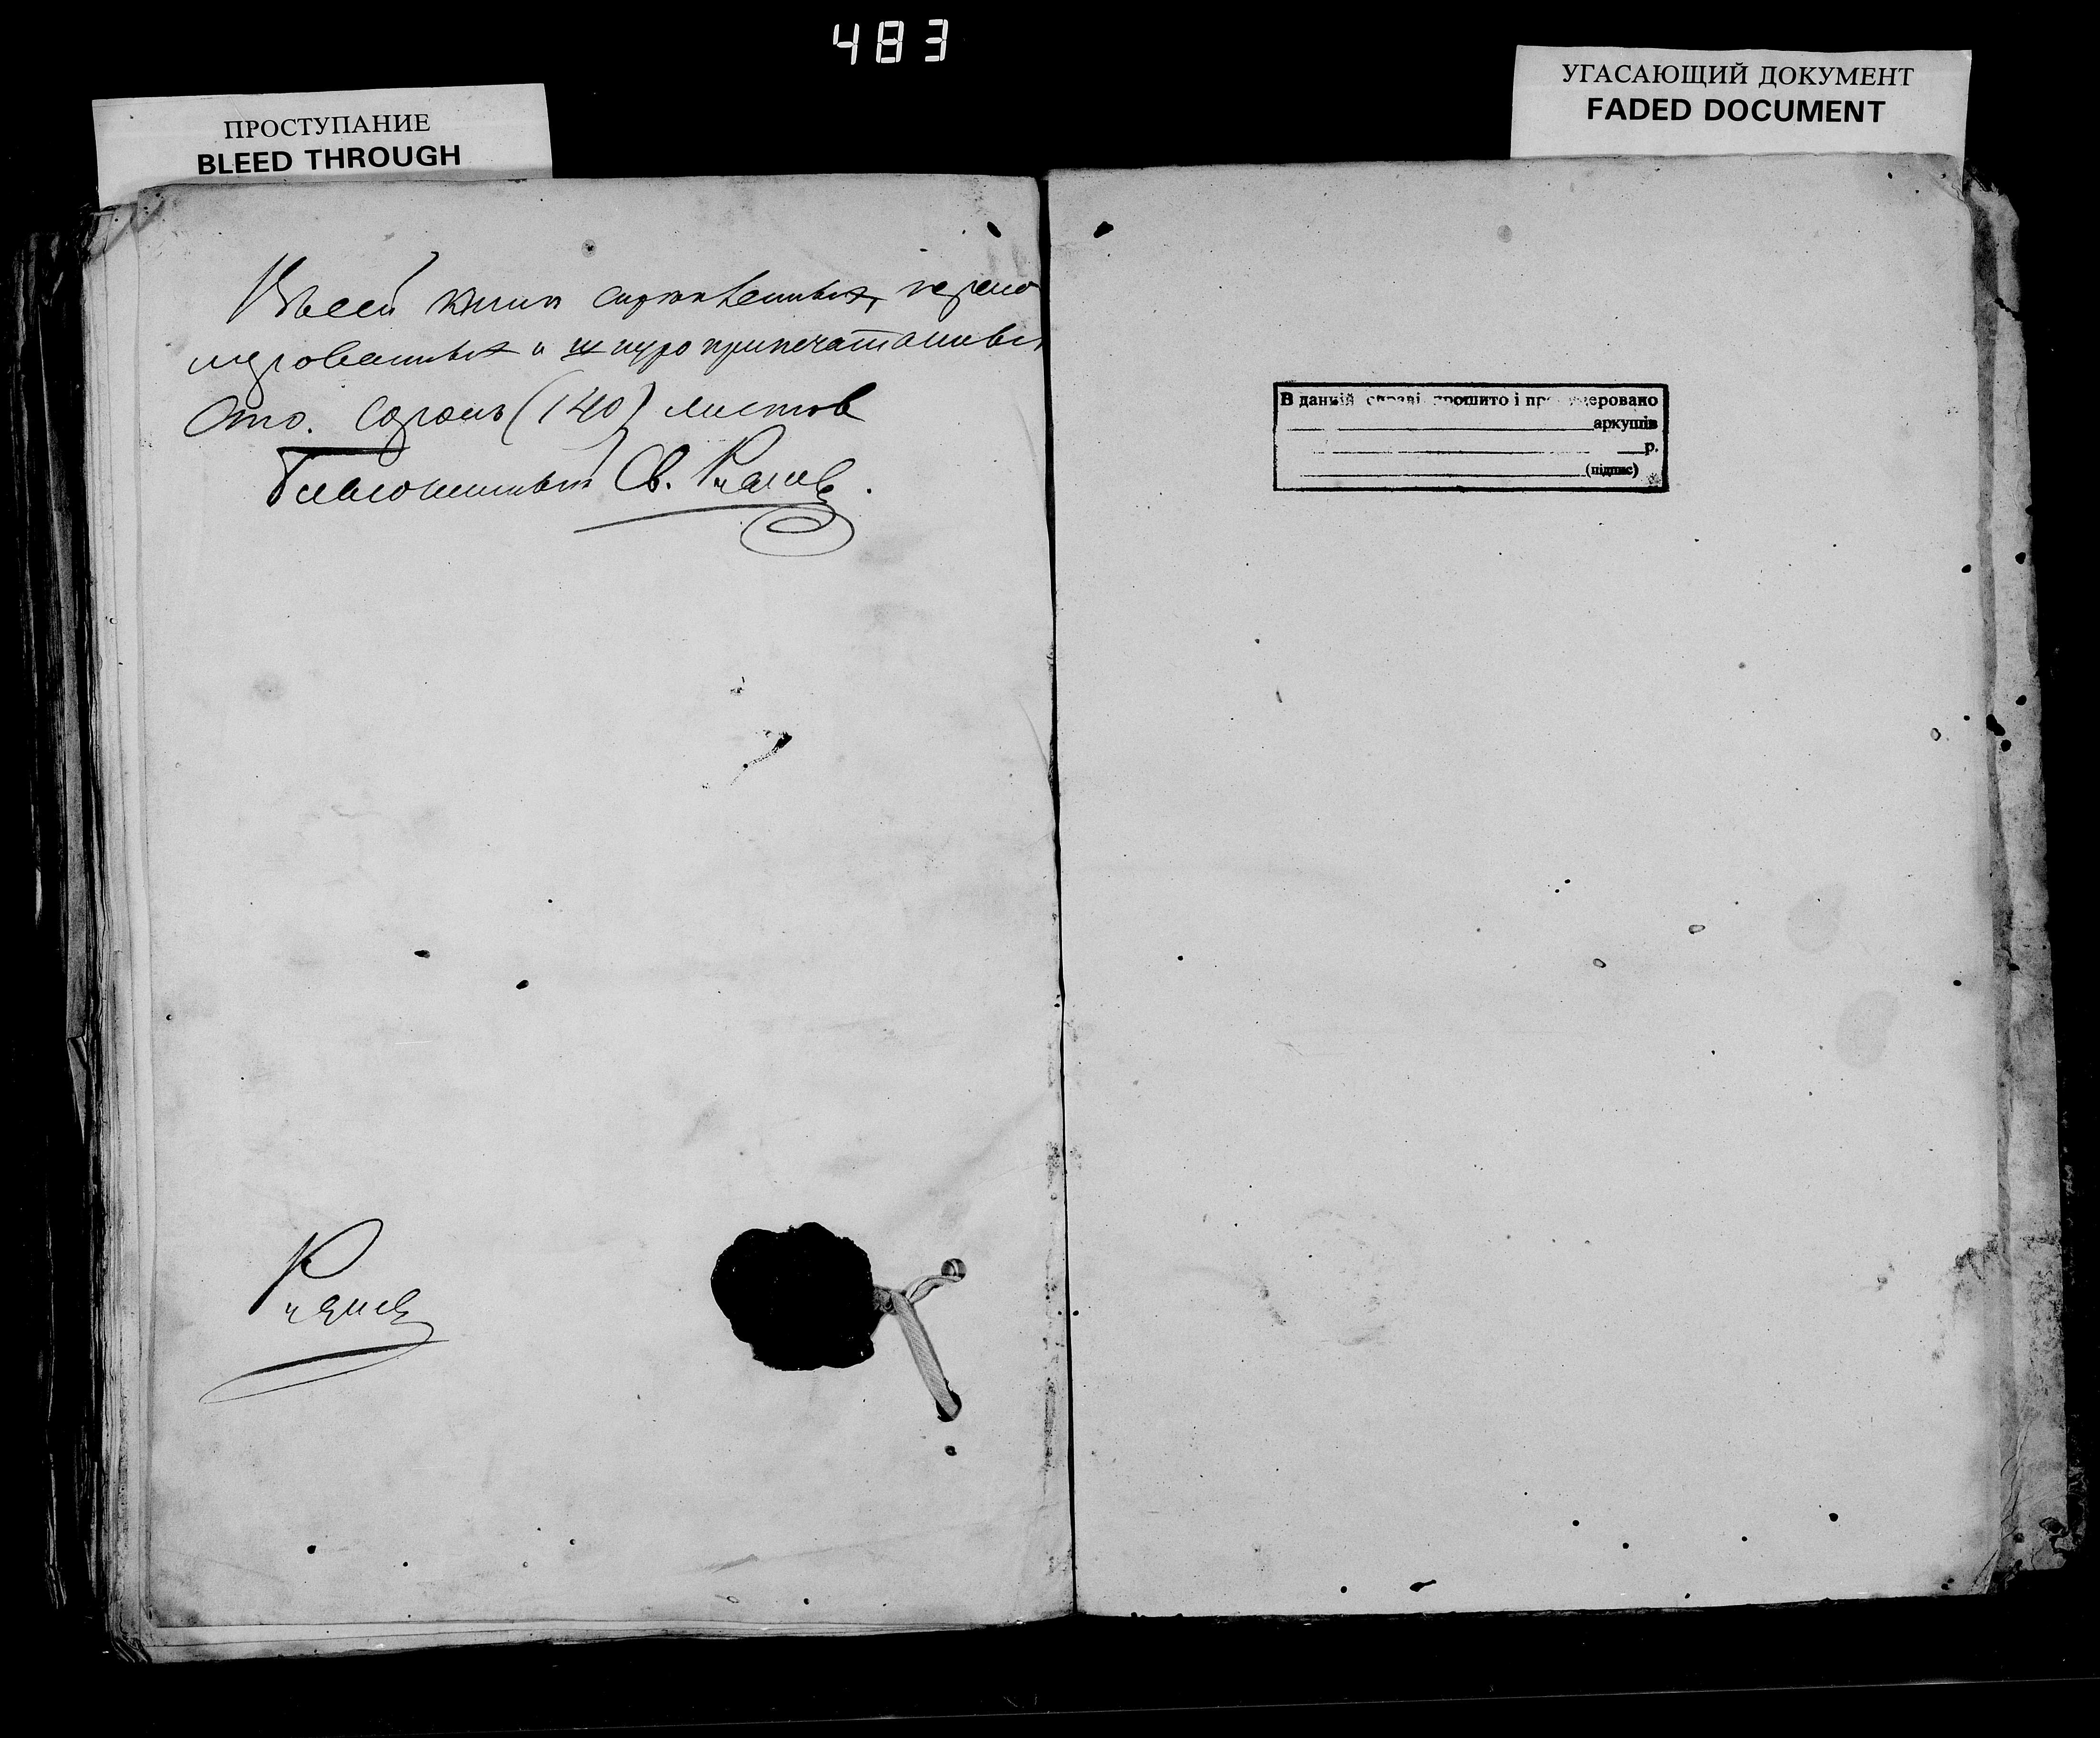 483
ПРОСТУПАНИЕ
BLEED THROUGH
УГАСАЮЩИЙ ДОКУМЕНТ
FADED DOCUMENT
В сей книги скрепленныхъ, перено
мерованныхъ и шнуроприпечатанныхъ
Сто. Сорокъ (140) листов
Благочинный Св.
В даній справі прошито і пр меровано
аркушів
р.
(підпис)